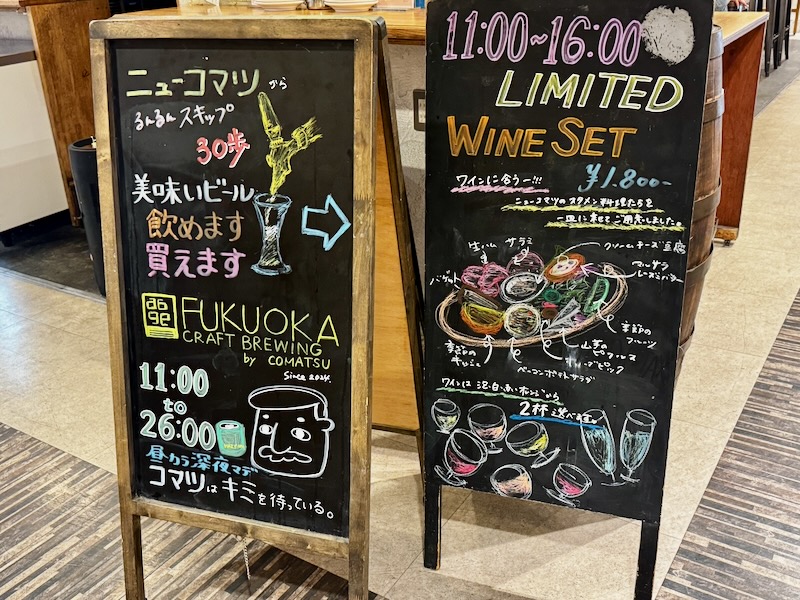 ニューコマツから
るんるんスキップ
30歩
美味いビール
飲めます
買えます
FUKUOKA
CRAFT BREWING
by COMATSU
Since 2024.
11:00
to
26:00
昼カラ深夜マデ
コマツはキミを待っている。
11:00~16:00
LIMITED
WINE SET
¥1.800-
ワインに合うー!!!
ニューコマツのスタメン料理たちを
一皿に乗せてご用意しました。
生ハム
サラミ
クリームチーズ豆腐
マルサラ
レーズンバター
バゲット
季節の
フルーツ
季節の
キッシュ
ピクルス
ベーコンポテトサラダ
ワインは泡・白・赤・オレンジから
2杯選べる!